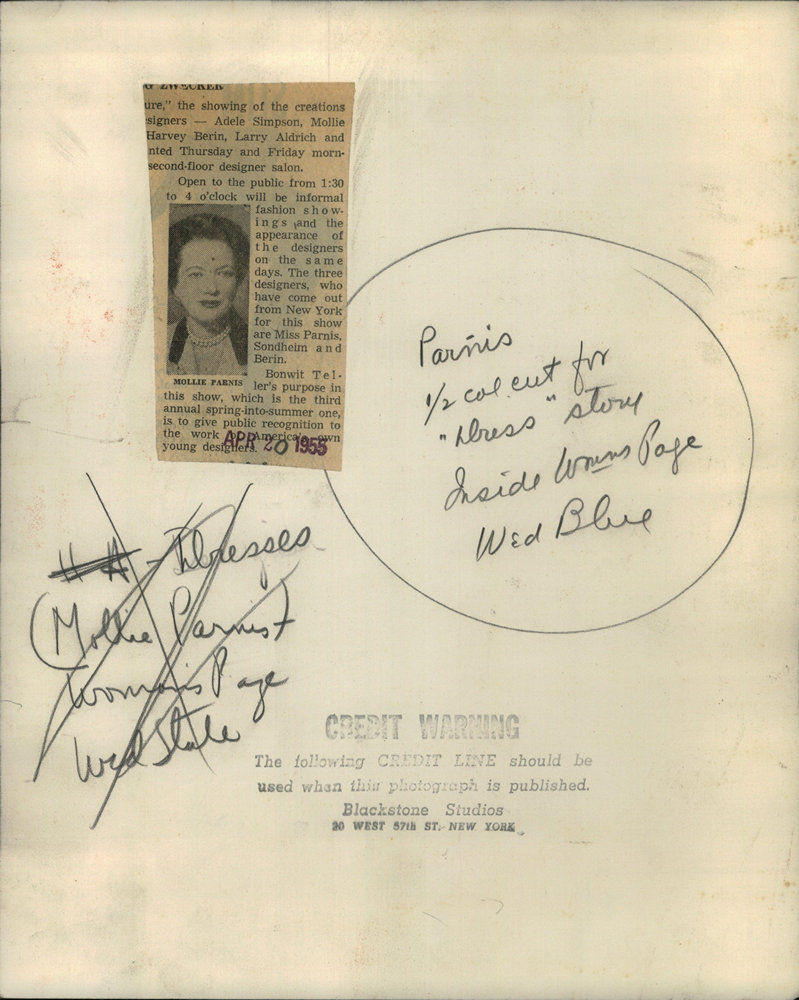 ZWECKER
ure," the showing of the creations
signers — Adele Simpson, Mollie
Harvey Berin, Larry Aldrich and
nted Thursday and Friday morn-
second-floor designer salon.
Open to the public from 1:30
to 4 o'clock will be informal
fashion show-
ings and the
appearance of
the designers
on the same
days. The three
designers, who
have come out
from New York
for this show
are Miss Parnis,
Sondheim and
Berin.
Bonwit Tel-
ler's purpose in
MOLLIE PARNIS
this show, which is the third
annual spring-into-summer one,
is to give public recognition to
the work of America's own
young designers.
APR 20 1955
Parnis
1/2 col cut for
"Dress" story
Inside Womns Page
Wed Blue
Dresses
(Mollie Parnis)
Woman's Page
Wed State
CREDIT WARNING
The following CREDIT LINE should be
used when this photograph is published.
Blackstone Studios
20 WEST 57th ST. NEW YORK